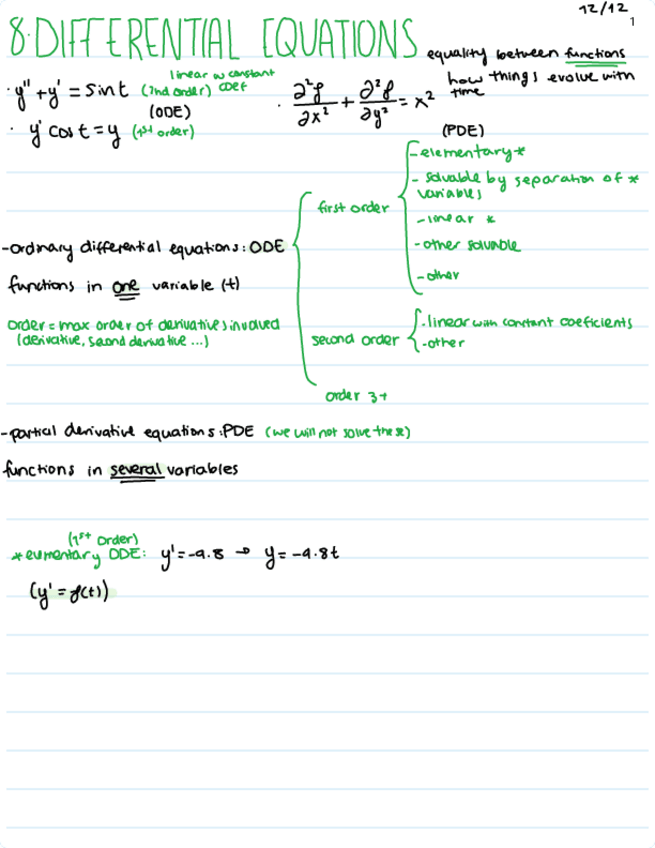 12/12
1
8. DIFFERENTIAL EQUATIONS equality between functions
how things evolve with time
linear w constant coef
· y'' + y' = sint (2nd order)
(ODE)
· y' cos t = y (1st order)
· ∂²f/∂x² + ∂²f/∂y² = x²
(PDE)
first order
- elementary *
- solvable by separation of * variables
- linear *
- other solvable
- other
- ordinary differential equations: ODE
functions in one variable (t)
order = max order of derivatives involved
(derivative, second derivative ...)
second order
· linear with constant coeficients
- other
order 3+
- partial derivative equations: PDE (we will not solve these)
functions in several variables
(1st order)
* elementary ODE: y' = -9.8 → y = -9.8t
(y' = f(t))